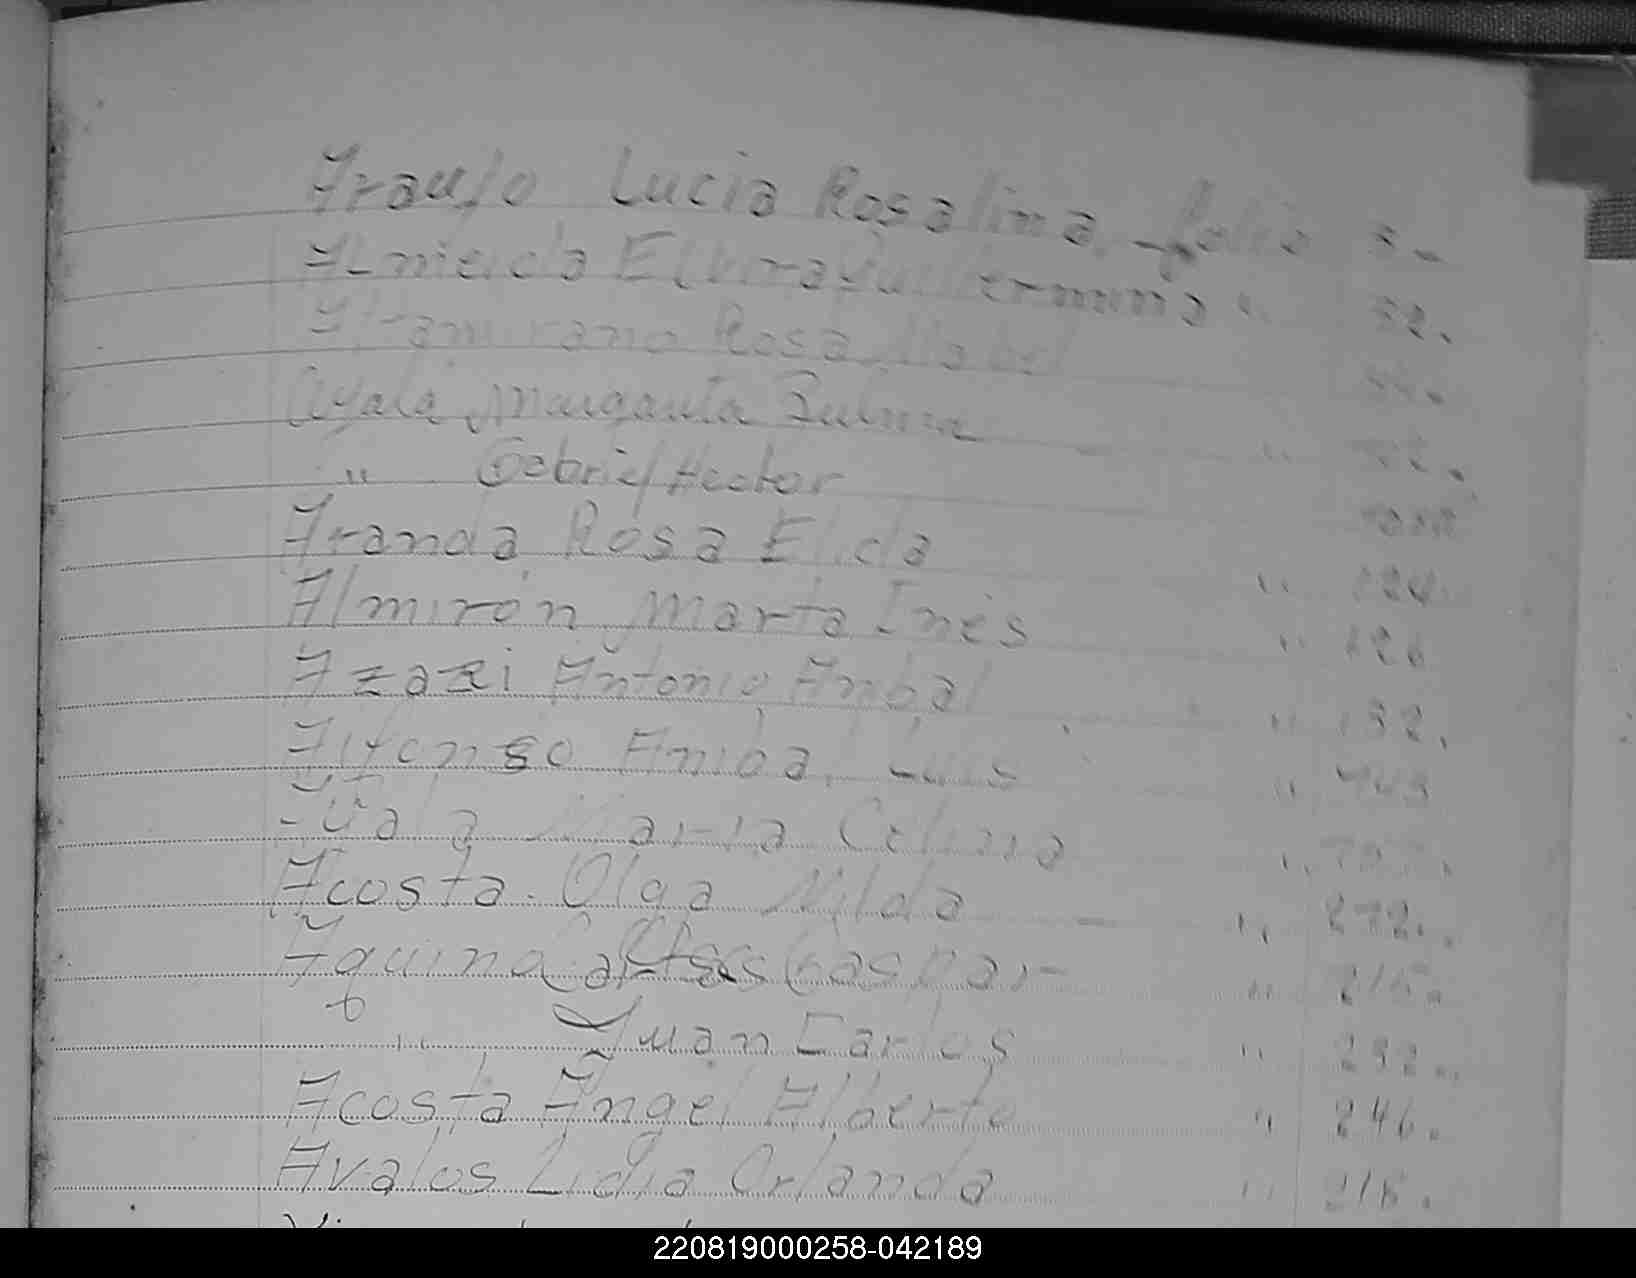 Araujo Lucia Rosalina, folio 5-
Almeida Elvira Guillermina " 52.
Altamirano Rosa Mabel
Ayala Margarita Zulma - "
" Gabriel Hector
Aranda Rosa Elida " 124.
Almirón Marta Inés " 126
Azari Antonio Anibal " 132.
Alfonso Anibal Luis " 143
Ayala María Celina "
Acosta. Olga Nilda - " 272.
Aquino Gaspar " 215.
" Juan Carlos " 232.
Acosta Ángel Alberto " 246.
Avalos Lidia Orlanda " 218.
220819000258-042189